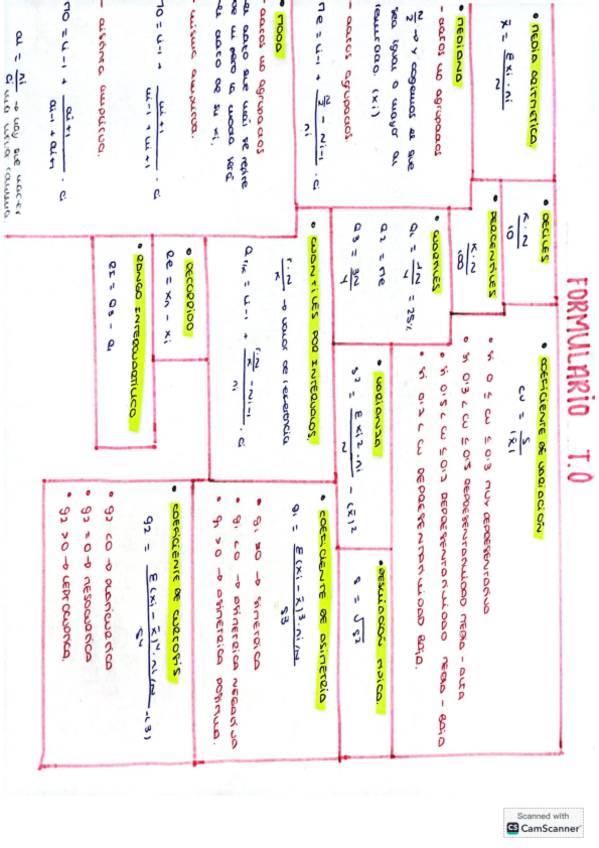 FORMULARIO T.0
• MEDIA ARITMETICA
x̄ = Σxi · ni / N
• MEDIANA
- DATOS NO AGRUPADOS
N/2 → Y COGEMOS EL QUE
SEA IGUAL O MAYOR AL
RESULTADO. (xi)
- DATOS AGRUPADOS
Me = Li-1 + (N/2 - Ni-1) / ni · ci
• MODA
- DATOS NO AGRUPADOS
EL DATO QUE MAS SE REPITE
DE ni PERO LA MODA SERÁ
EL DATO DE SU xi.
- MISMA AMPLITUD.
MO = Li-1 + ni+1 / (ni-1 + ni+1) · ci
- DISTINTA AMPLITUD.
MO = Li-1 + di+1 / (di-1 + di+1) · ci
di = ni / ci → HAY QUE HACER
• DECILES
K·N / 10
• PERCENTILES
K·N / 100
• CUARTILES
Q1 = 1N / 4 = 25%
Q2 = Me
Q3 = 3N / 4
• CUANTILES POR INTERVALOS.
r·N / K → VALOR DE REFERENCIA
Qr/K = Li-1 + (r·N/K - Ni-1) / ni · ci
• RECORRIDO
RE = xn - xi
• RANGO INTERCUARTILICO
RI = Q3 - Q1
• COEFICIENTE DE VARIACION
CV = S / |x̄|
• Si 0 ≤ CV ≤ 0'3 MUY REPRESENTATIVO
• Si 0'3 < CV ≤ 0'5 REPRESENTATIVIDAD MEDIA - ALTA
• Si 0'5 < CV ≤ 0'7 REPRESENTATIVIDAD MEDIA - BAJA
• Si 0'7 < CV REPRESENTATIVIDAD BAJA.
• VARIANZA
S² = Σxi² · ni / N - (x̄)²
• DESVIACION TIPICA.
S = √S²
• COEFICIENTE DE ASIMETRIA
g1 = Σ(xi - x̄)³ · ni/N / S³
• g1 = 0 → SIMETRICA
• g1 < 0 → ASIMETRICA NEGATIVA
• g1 > 0 → ASIMETRICA POSITIVA.
• COEFICIENTE DE CURTOSIS
g2 = Σ(xi - x̄)⁴ · ni/N / S⁴ - (3)
• g2 < 0 → PLATICURTICA
• g2 = 0 → MESOCURTICA
• g2 > 0 → LEPTOCURTICA.
Scanned with
CS CamScanner